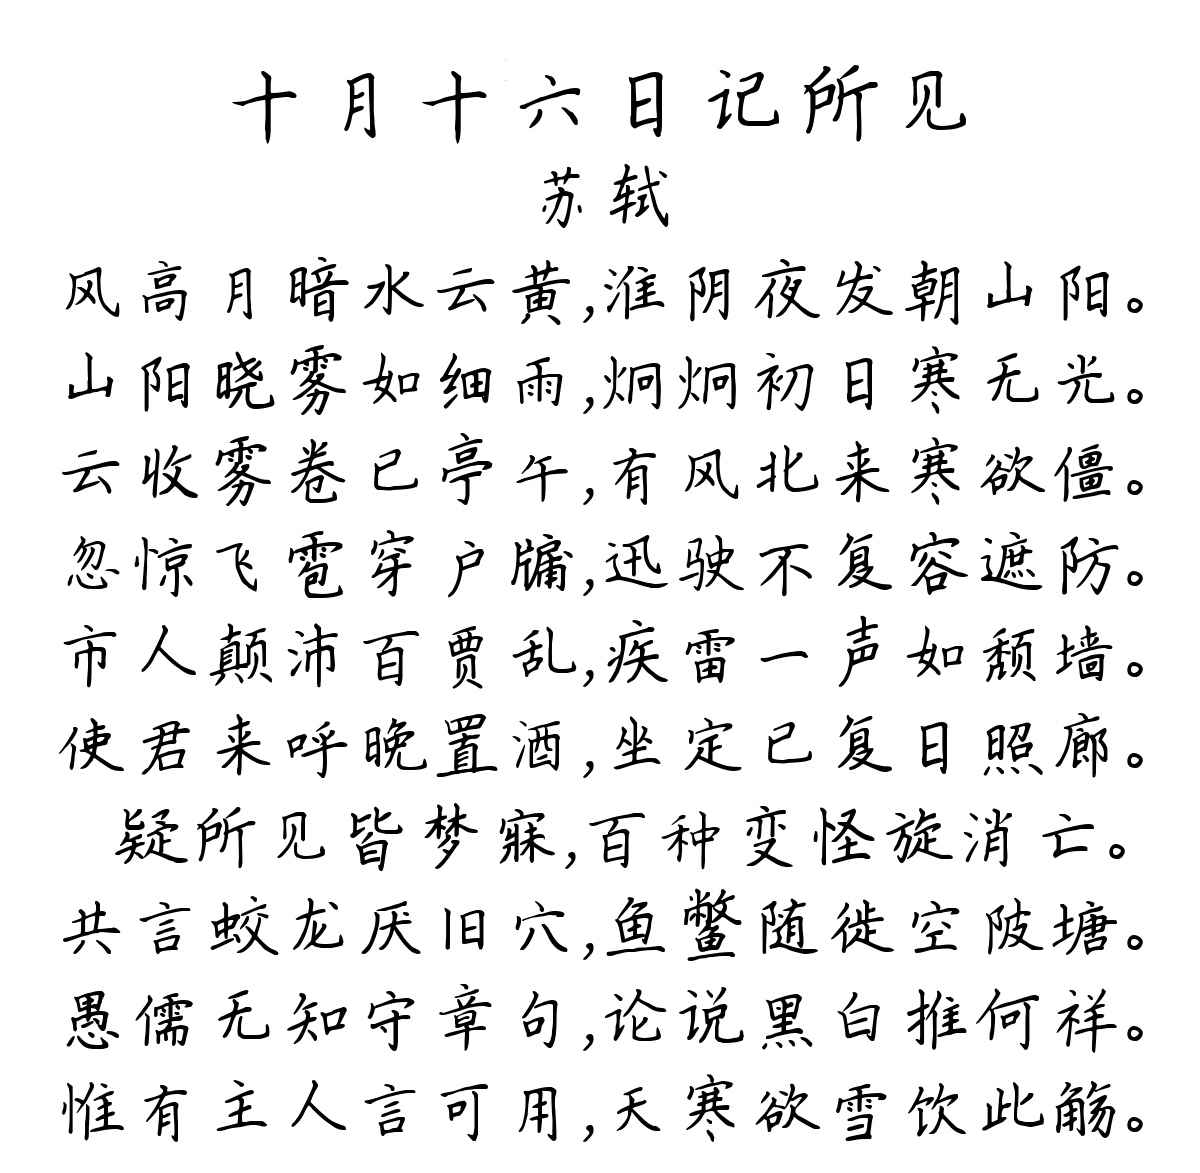 十月十六日记所见
苏轼
风高月暗水云黄,淮阴夜发朝山阳。
山阳晓雾如细雨,炯炯初日寒无光。
云收雾卷已亭午,有风北来寒欲僵。
忽惊飞雹穿户牖,迅驶不复容遮防。
市人颠沛百贾乱,疾雷一声如颓墙。
使君来呼晚置酒,坐定已复日照廊。
疑所见皆梦寐,百种变怪旋消亡。
共言蛟龙厌旧穴,鱼鳖随徙空陂塘。
愚儒无知守章句,论说黑白推何祥。
惟有主人言可用,天寒欲雪饮此觞。